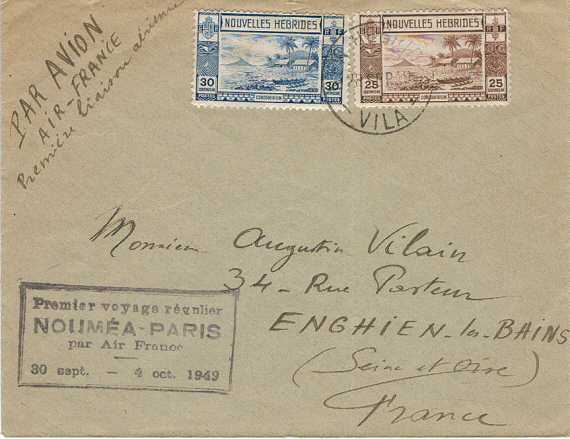 PAR AVION
AIR-FRANCE
Première liaison aérienne
NOUVELLES HEBRIDES
RF
30
30
POSTES
CONDOMINIUM
NOUVELLES HEBRIDES
RF
25
25
POSTES
CONDOMINIUM
VILA
Monsieur Augustin Vilain
34 - Rue Pasteur
ENGHIEN-les-BAINS
(Seine et Oise)
France
Premier voyage régulier
NOUMÉA-PARIS
par Air France
30 sept. - 4 oct. 1949